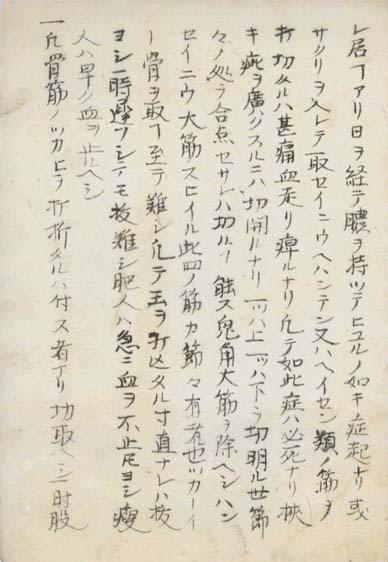 レ居ヿアリ日ヲ経テ膿ヲ持ツテヒユルノ如キ症起ナリ或
サクリヲ入レテ取セイニウヘハンテン又ハヘイセン類ノ筋ヲ
打切タルハ甚痛血走リ痺ルナリ凡テ如此症ハ必死ナリ挾
キ疵ヲ廣クスルニハ切開ルナリ一ツハ上一ツハ下ヲ切明ル世節
々ノ処ヲ合点セサレハ切ルヿ能ス鬼角大筋ヲ除ヘシハン
セイニウ大筋スヒイル此四ノ筋カ節々有者也ツカーイ
ー骨ヲ取ヿ至テ難シ凡テ玉ヲ打込タル寸直ナレハ抜
ヨシ一時遅ソシテモ抜難シ肥人ハ急ニ血ヲ不止尼ヨシ瘦
人ハ早ク血ヲ止ルヘシ
一凡骨筋ノツカヒヲ打折タルハ付ス者ナリ切取ヘシ肘股